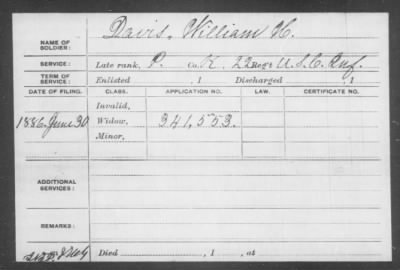 NAME OF SOLDIER: Davis, William H.
SERVICE: Late rank, P. Co. K, 22 Reg't U.S.C. Inf.
TERM OF SERVICE: Enlisted , 1 Discharged , 1
DATE OF FILING. CLASS. APPLICATION NO. LAW. CERTIFICATE NO.
Invalid,
1886 June 30 Widow, 341,553.
Minor,
ADDITIONAL SERVICES:
REMARKS:
Died , 1 , at